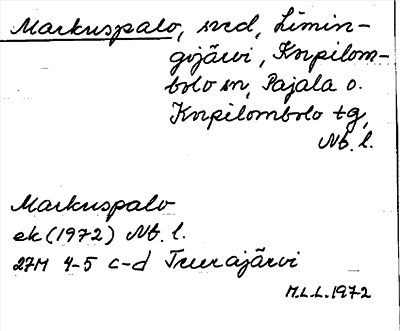 Markuspalo, sved, Limin-
gojärvi, Korpilom-
bolo sn, Pajala o.
Korpilombolo tg,
Nb. l.
Markuspalo
ek (1972) Nb. l.
27M 4-5 c-d Teurajärvi
M.L.L. 1972